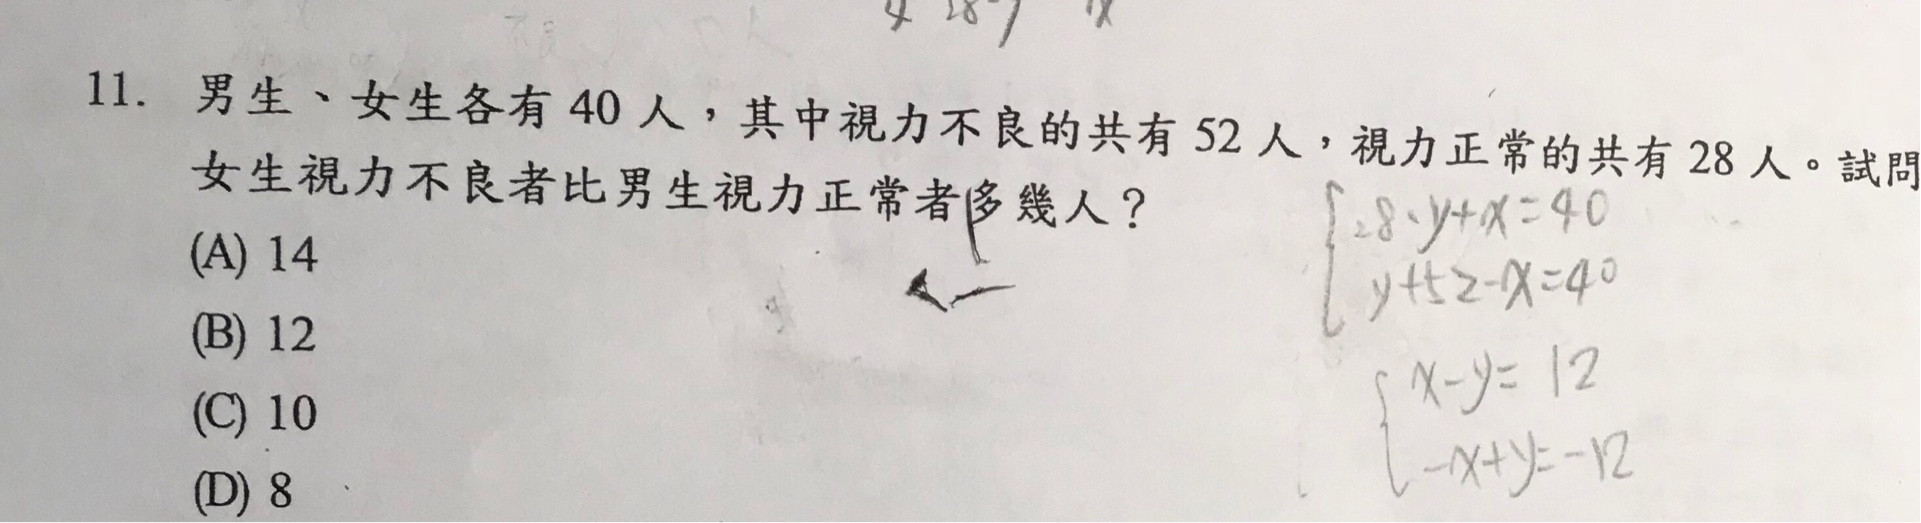 11. 男生、女生各有 40 人，其中視力不良的共有 52 人，視力正常的共有 28 人。試問
女生視力不良者比男生視力正常者多幾人？
28-y+x=40
(A) 14
y+52-x=40
(B) 12
x-y=12
(C) 10
-x+y=-12
(D) 8